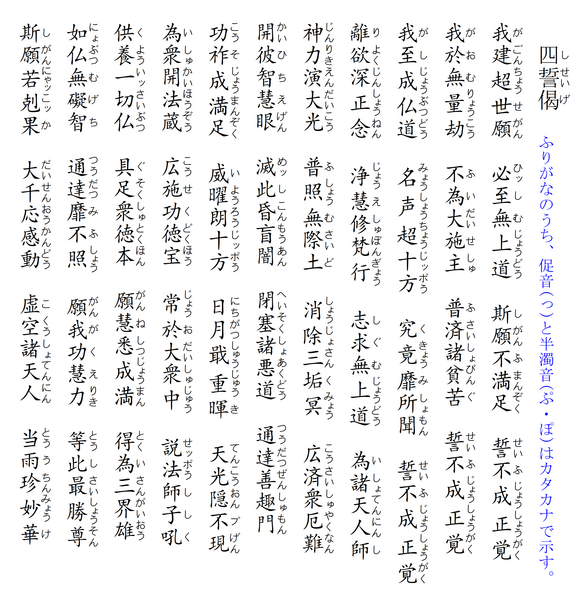 四誓偈
しせいげ
ふりがなのうち、促音(っ)と半濁音(ぷ・ぽ)はカタカナで示す。
我建超世願 必至無上道 斯願不満足 誓不成正覚
がごんちょうせがん ひッしむじょうどう しがんふまんぞく せいふじょうしょうがく
我於無量劫 不為大施主 普済諸貧苦 誓不成正覚
がおむりょうこう ふいだいせしゅ ふさいしょびんぐ せいふじょうしょうがく
我至成仏道 名声超十方 究竟靡所聞 誓不成正覚
がしじょうぶつどう みょうしょうちょうじッポう くきょうみしょもん せいふじょうしょうがく
離欲深正念 浄慧修梵行 志求無上道 為諸天人師
りよくじんしょうねん じょうえしゅぼんぎょう しぐむじょうどう いしょてんにんし
神力演大光 普照無際土 消除三垢冥 広済衆厄難
じんりきえんだいこう ふしょうむさいど しょうじょさんくみょう こうさいしゅやくなん
開彼智慧眼 滅此昏盲闇 閉塞諸悪道 通達善趣門
かいひちえげん めッしこんもうあん へいそくしょあくどう つうだつぜんしゅもん
功祚成満足 威曜朗十方 日月戢重暉 天光隠不現
こうそじょうまんぞく いようろうじッポう にちがつしゅうじゅうき てんこうおんプげん
為衆開法蔵 広施功徳宝 常於大衆中 説法師子吼
いしゅかいほうぞう こうせくどくほう じょうおだいしゅじゅう せッポうししく
供養一切仏 具足衆徳本 願慧悉成満 得為三界雄
くよういッさいぶつ ぐそくしゅとくほん がんねしつじょうまん とくいさんがいおう
如仏無礙智 通達靡不照 願我功慧力 等此最勝尊
にょぶつむげち つうだつみふしょう がんがくえりき とうしさいしょうそん
斯願若剋果 大千応感動 虚空諸天人 当雨珍妙華
しがんにゃこッか だいせんおうかんどう こくうしょてんにん とううちんみょうけ